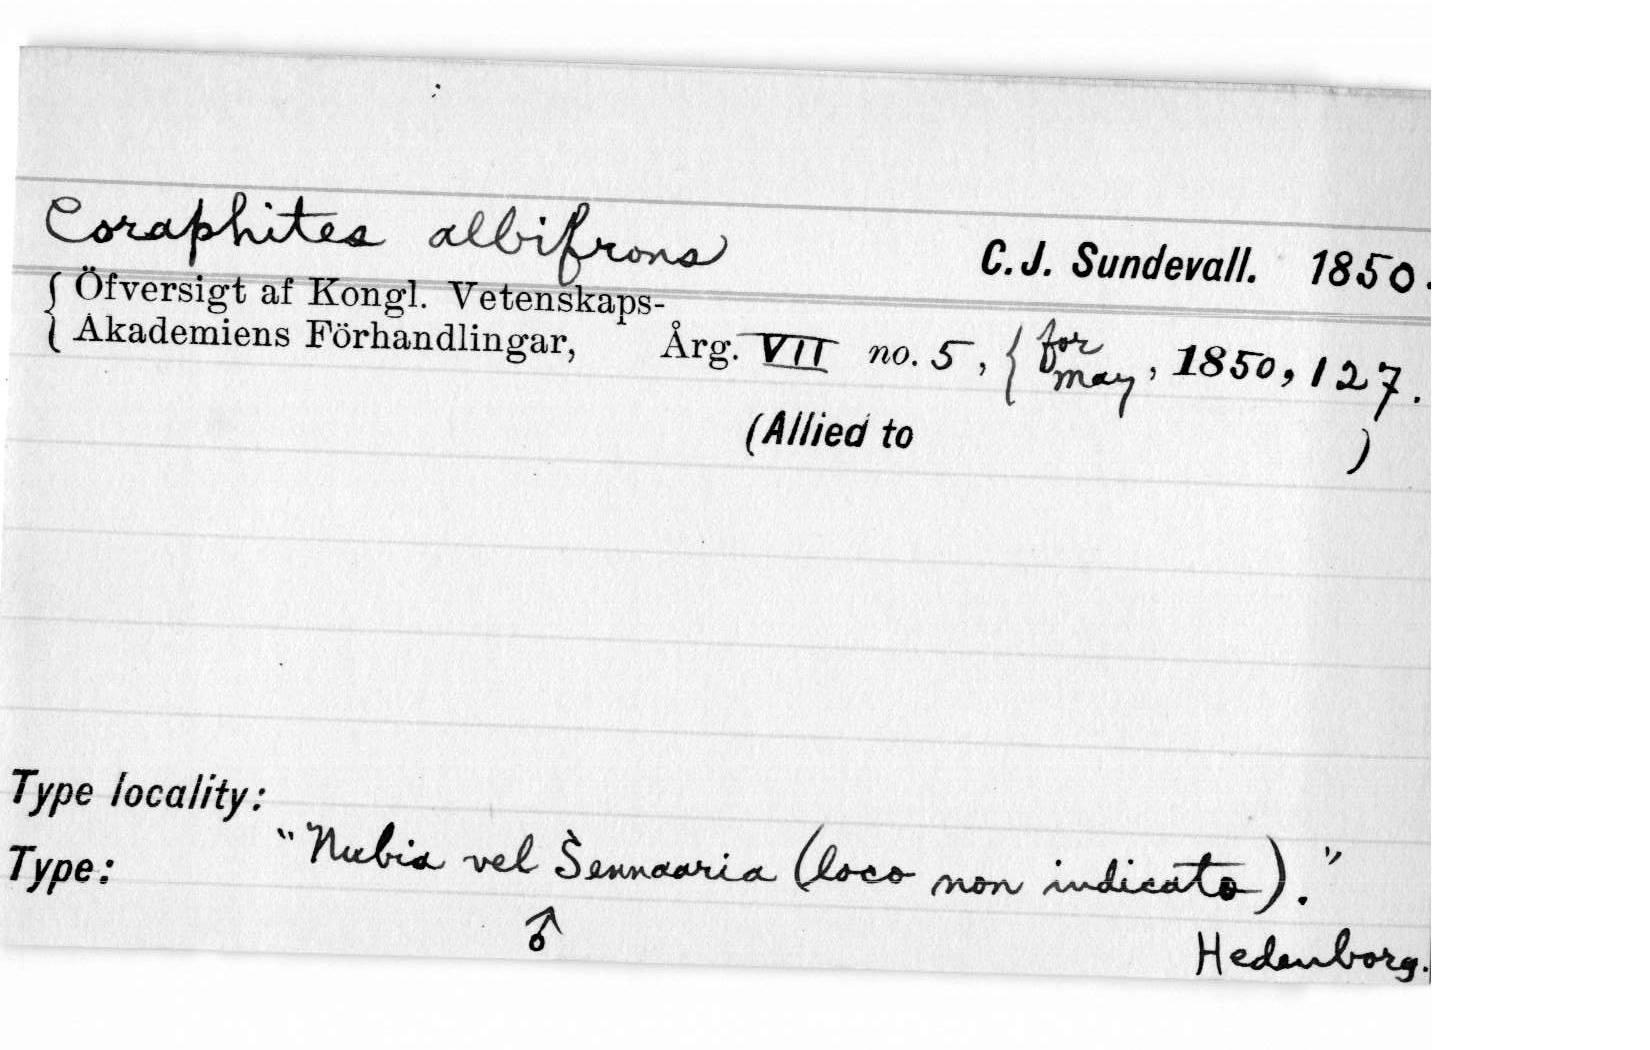 Coraphites albifrons C. J. Sundevall. 1850.
{ Öfversigt af Kongl. Vetenskaps-
Akademiens Förhandlingar, Årg. VII no. 5, { for may, 1850, 127.
(Allied to )
Type locality:
"Nubia vel Sennaaria (loco non indicato)."
Type:
♂ Hedenborg.